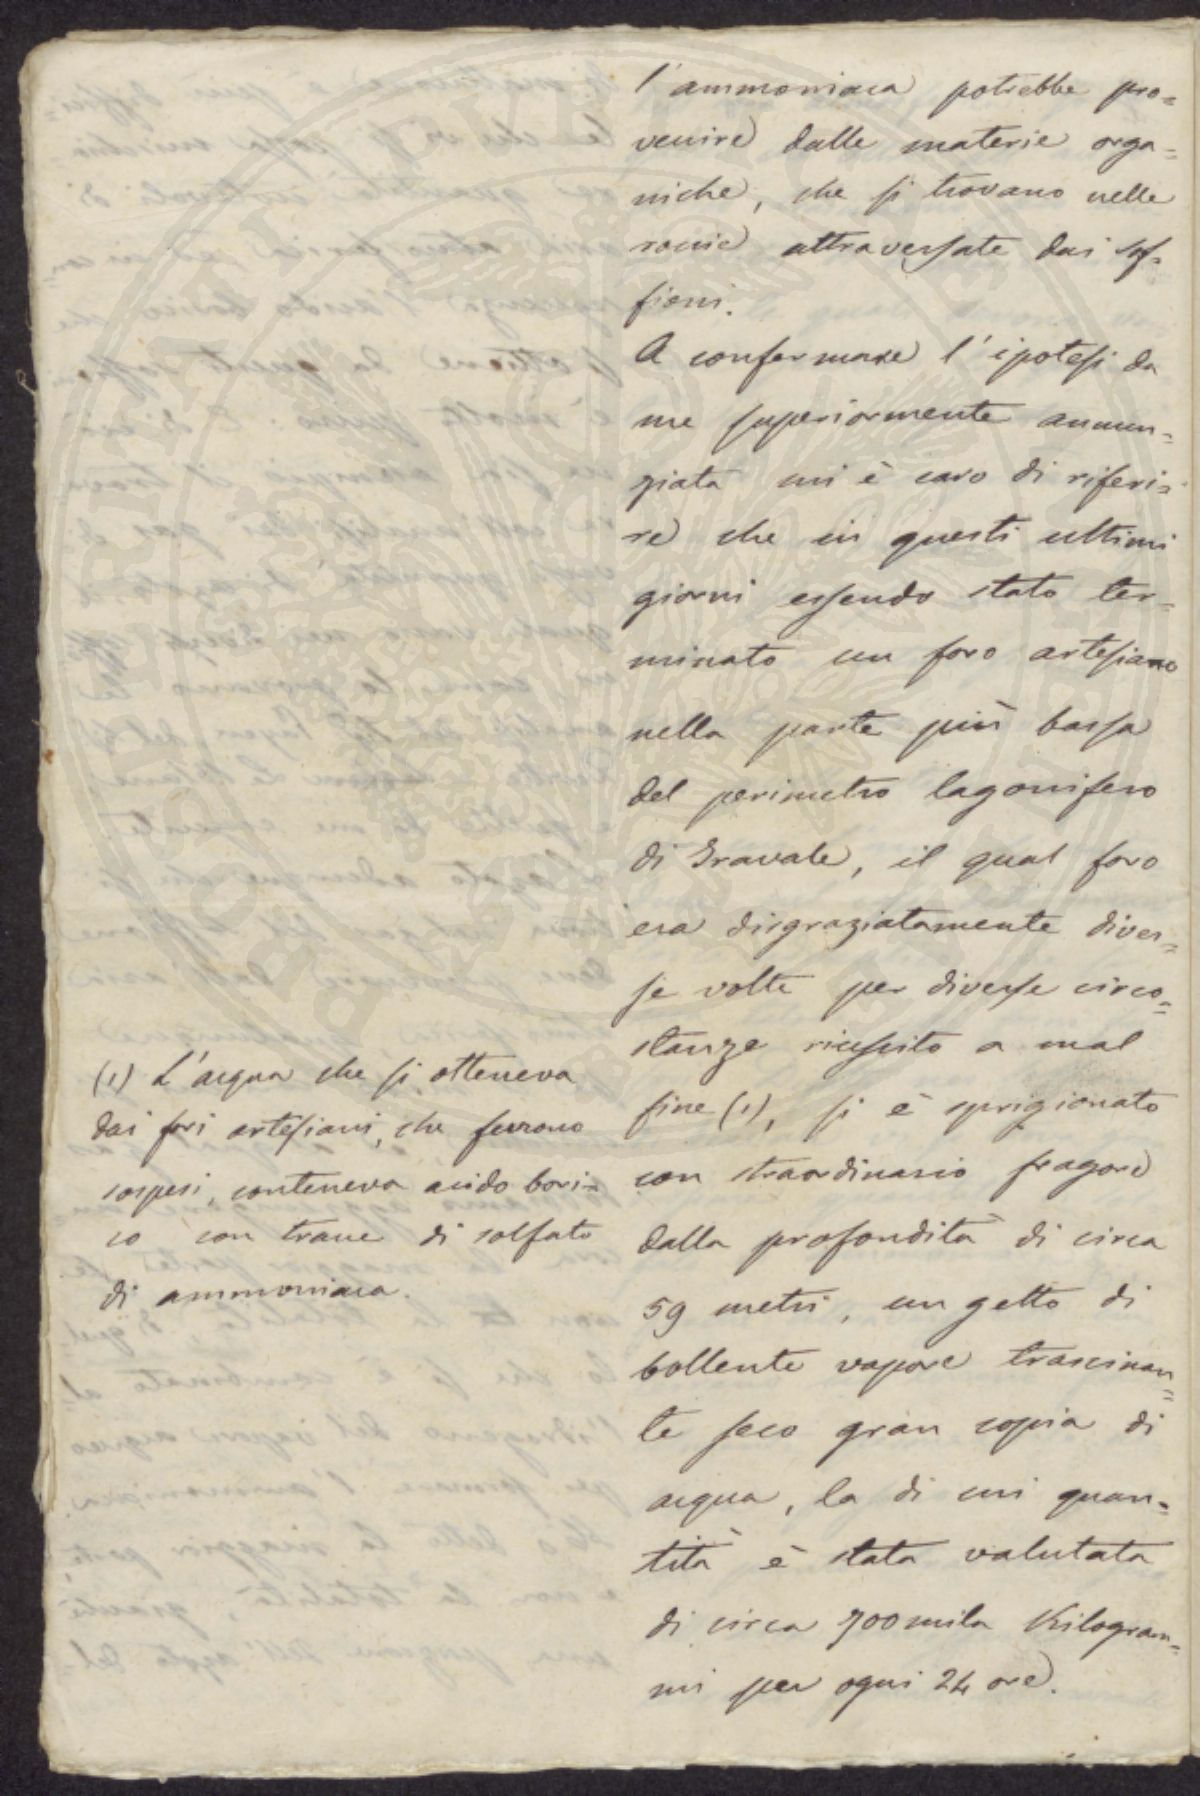 l'ammoniaca potrebbe pro=
venire dalle materie orga=
niche, che si trovano nelle
roccie attraversate dai sof=
fioni.
A confermare l'ipotesi da
me superiormente annun=
ziata mi è caro di riferi=
re che in questi ultimi
giorni essendo stato ter=
minato un foro artesiano
nella parte più bassa
del perimetro lagonifero
di Travale, il qual foro
era disgraziatamente diver=
se volte per diverse circo=
stanze riuscito a mal
fine (1), si è sprigionato
con straordinario fragore
dalla profondità di circa
59 metri, un getto di
bollente vapore trascinan=
te seco gran copia di
acqua, la di cui quan=
tità è stata valutata
di circa 700mila Kilogram=
mi per ogni 24 ore.
(1) L'acqua che si otteneva
dai fori artesiani, che furono
sospesi, conteneva acido bori=
co con tracce di solfato
di ammoniaca.